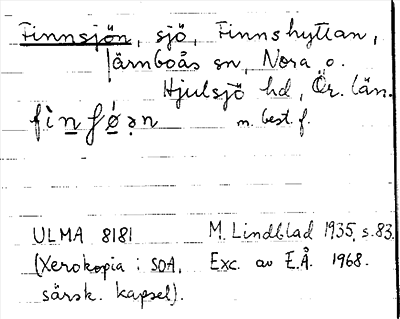 Finnsjön, sjö, Finnshyttan,
Järnboås sn, Nora o.
Hjulsjö hd, Ör. län.
m. best. f.
ULMA 8181 M. Lindblad 1935, s.83.
(Xerokopia i SOA, Exc. av E.Å. 1968.
särsk. kapsel).